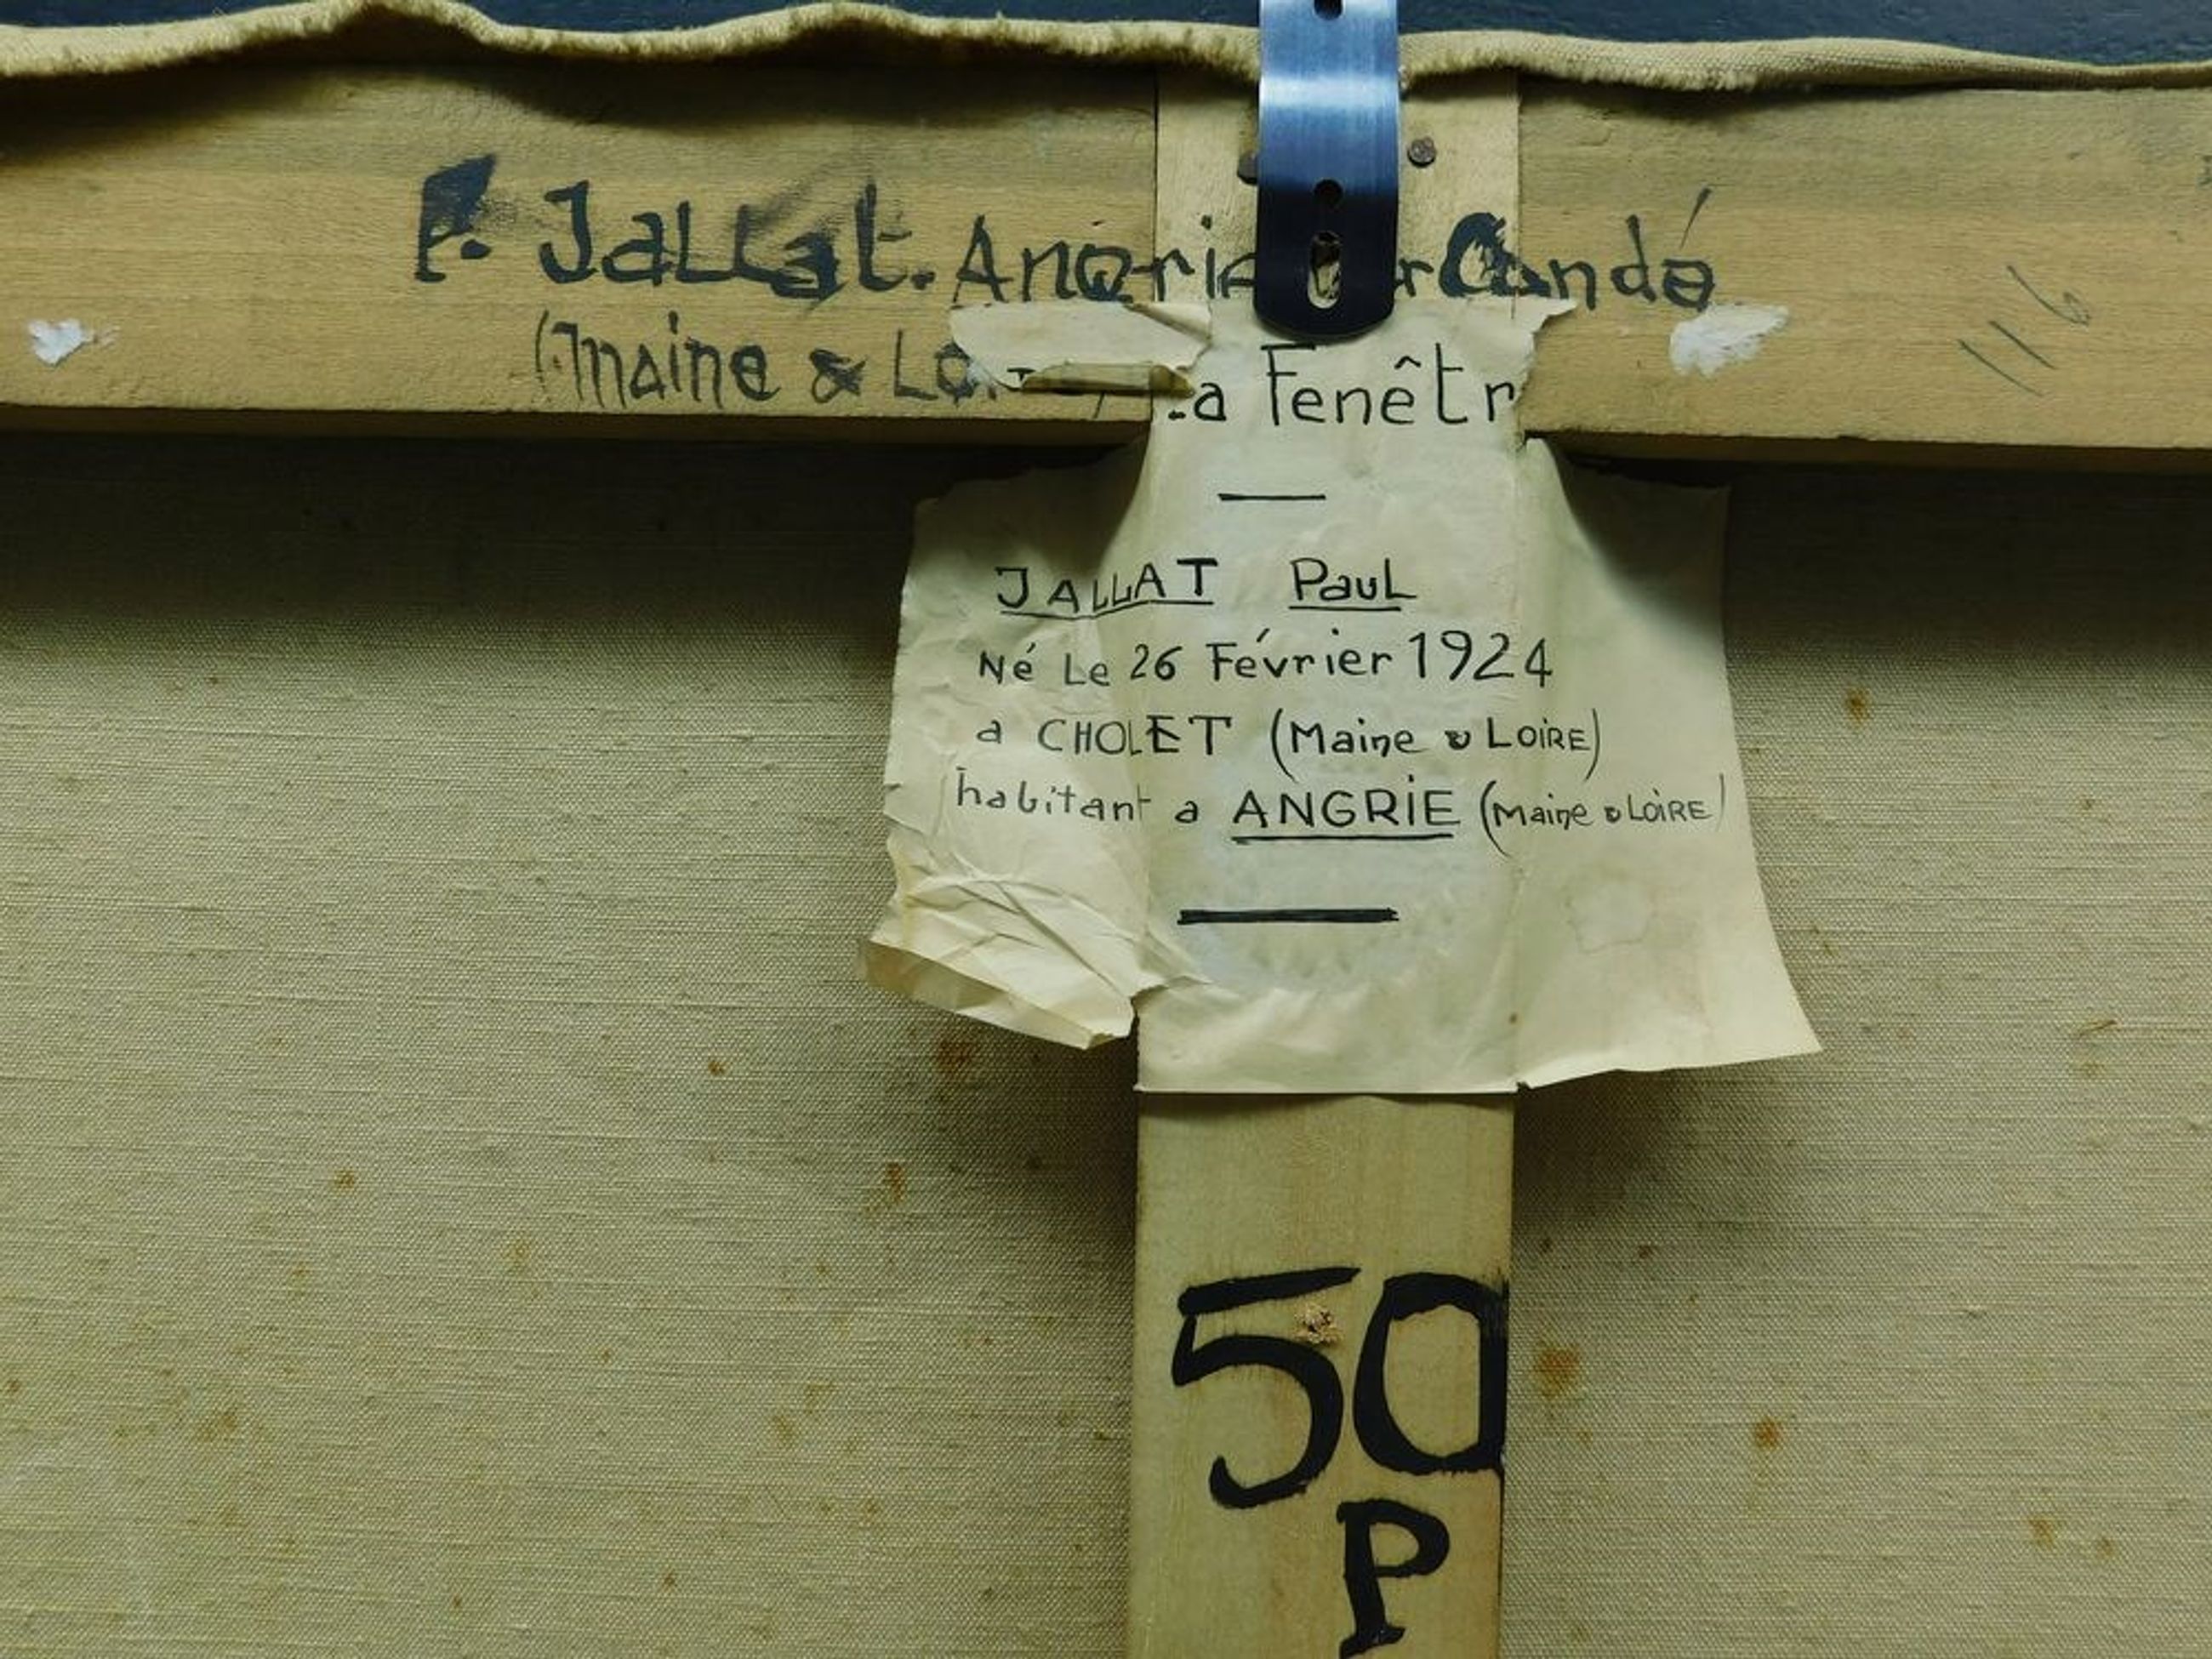 P. Jallat. Angrie Candé
116
(Maine & Lo
La Fenêtr
JALLAT Paul
Né Le 26 Février 1924
a CHOLET (Maine & LOIRE)
habitant a ANGRIE (Maine & LOIRE)
50
P